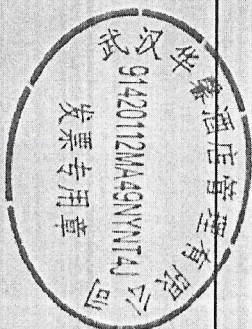 武汉华缘酒店管理有限公司
91420112MA49NYNT4J
发票专用章